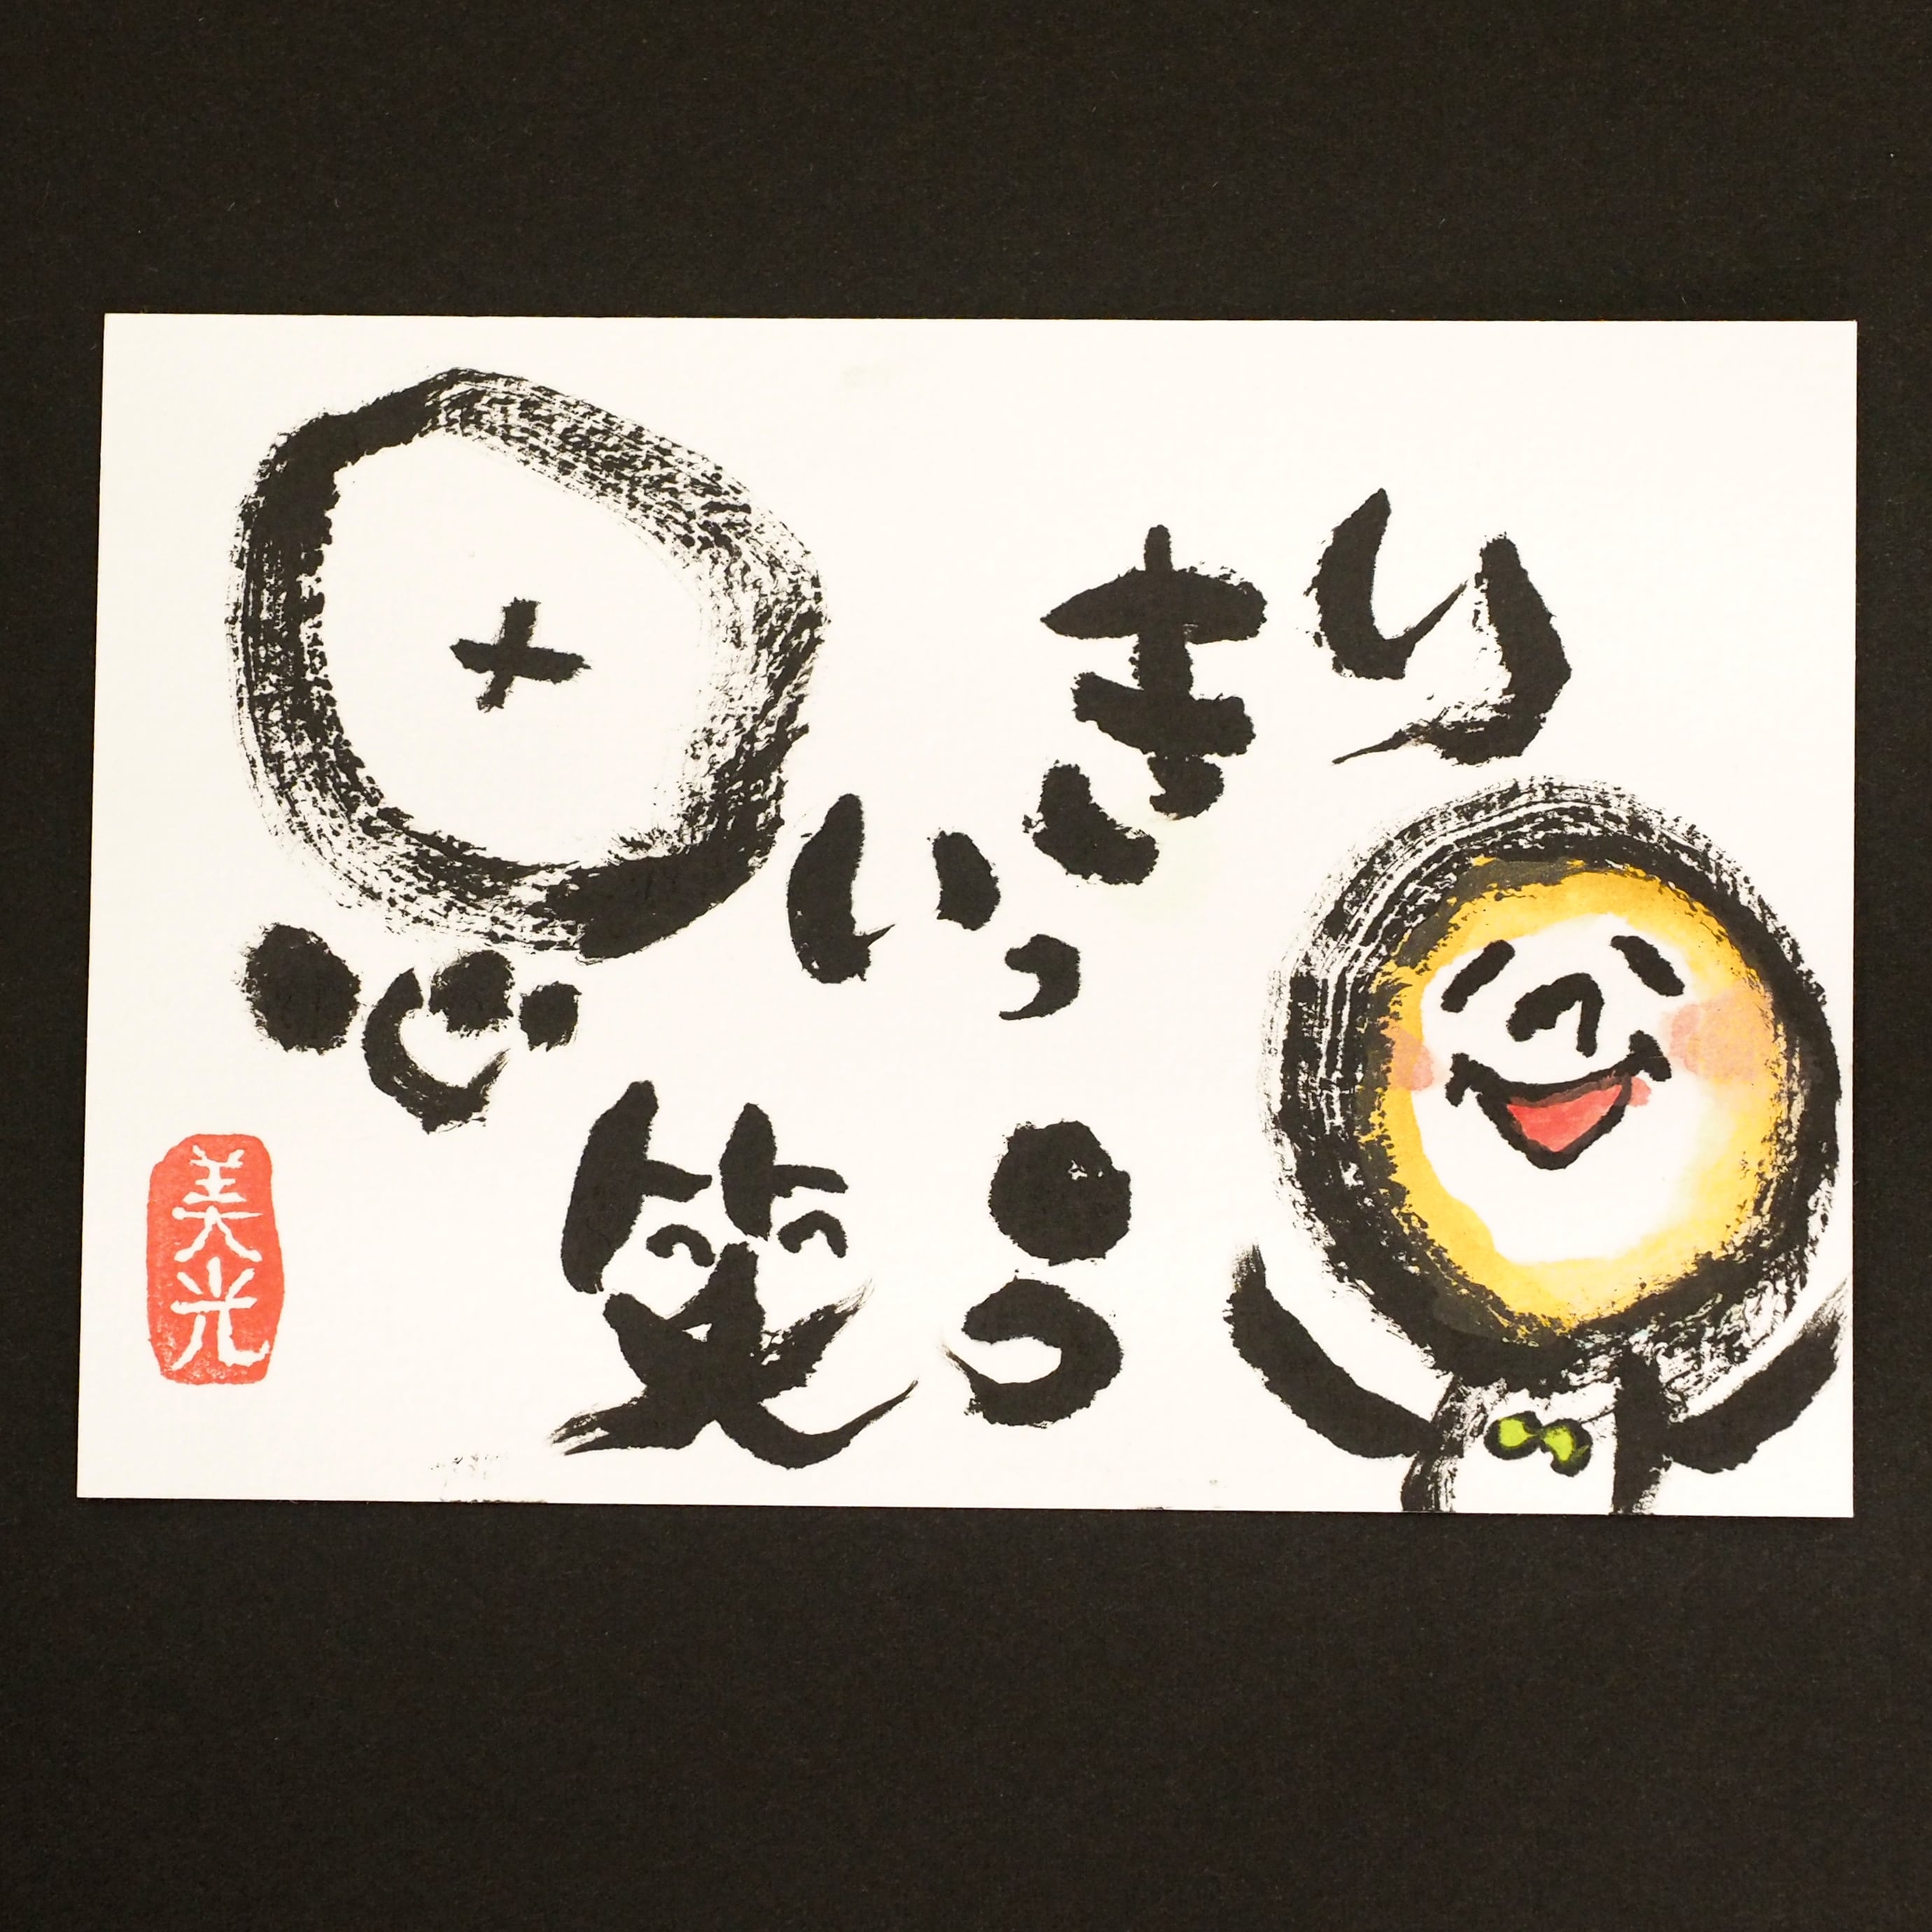 思いっきり
笑う
美光